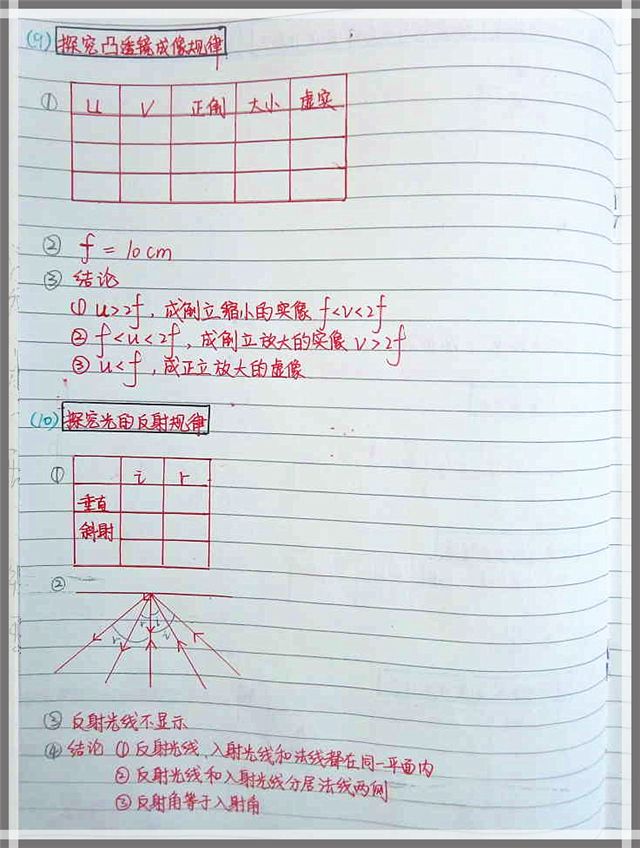 (9) 探究凸透镜成像规律
① u v 正倒 大小 虚实
② f = 10cm
③ 结论
① u>2f，成倒立缩小的实像 f<v<2f
② f<u<2f，成倒立放大的实像 v>2f
③ u<f，成正立放大的虚像
(10) 探究光的反射规律
① i r
垂直
斜射
②
③ 反射光线不显示
④ 结论 ① 反射光线、入射光线和法线都在同一平面内
② 反射光线和入射光线分居法线两侧
③ 反射角等于入射角